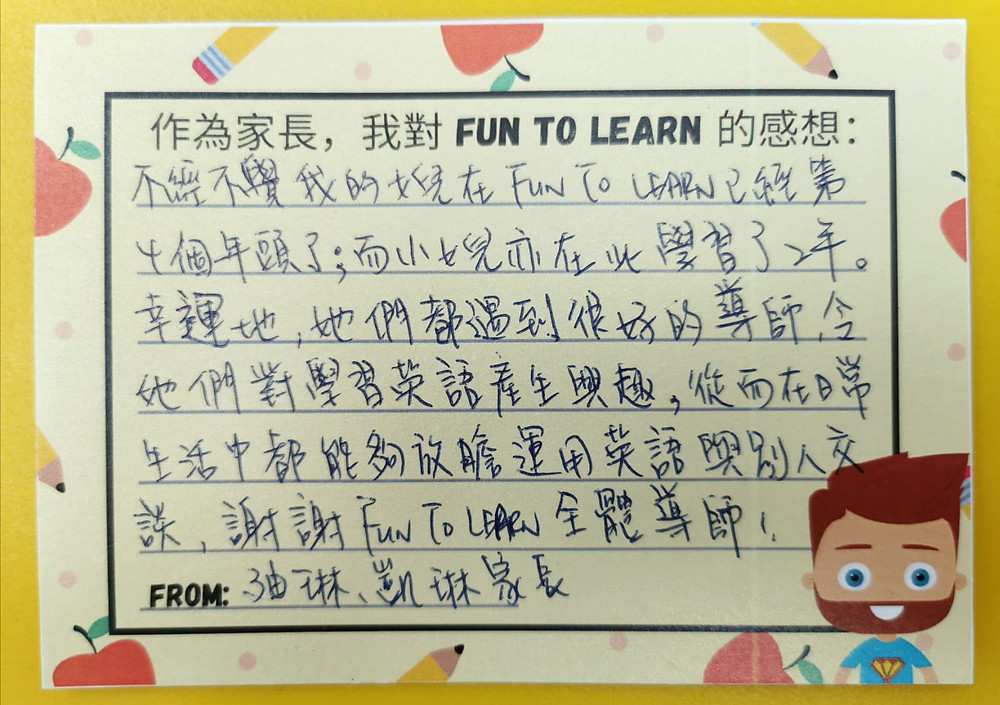 作為家長，我對 FUN TO LEARN 的感想：
不經不覺我的女兒在 FUN TO LEARN 已經第
4個年頭了；而小女兒亦在此學習了2年。
幸運地，她們都遇到很好的導師，令
她們對學習英語產生興趣，從而在日常
生活中都能夠放膽運用英語與別人交
談，謝謝 FUN TO LEARN 全體導師！
FROM: 琳、凱琳家長